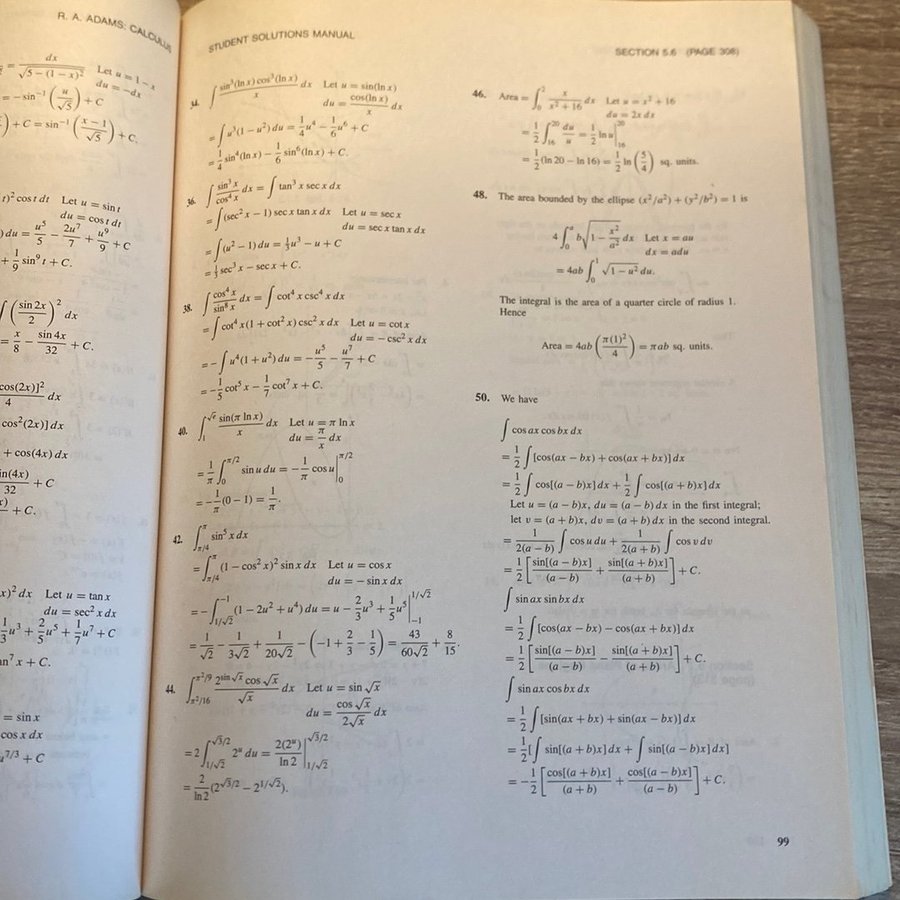 R. A. ADAMS: CALCULUS
= dx / √(5 − (1 − x)²) Let u = 1 − x
du = −dx
= − sin⁻¹ (u/√5) + C
) + C = sin⁻¹ ((x − 1)/√5) + C.
t)² cos t dt Let u = sin t
du = cos t dt
) du = u⁵/5 − 2u⁷/7 + u⁹/9 + C
+ 1/9 sin⁹ t + C.
∫ (sin 2x / 2)² dx
= x/8 − sin 4x/32 + C.
cos(2x)]²/4 dx
cos²(2x)] dx
+ cos(4x) dx
in(4x)/32 + C
+ C.
x)² dx Let u = tan x
du = sec² x dx
1/3 u³ + 2/5 u⁵ + 1/7 u⁷ + C
an⁷ x + C.
= sin x
cos x dx
7/3 + C
STUDENT SOLUTIONS MANUAL
SECTION 5.6 (PAGE 308)
34. ∫ sin³(ln x) cos³(ln x)/x dx Let u = sin(ln x)
du = cos(ln x)/x dx
= ∫ u³(1 − u²) du = 1/4 u⁴ − 1/6 u⁶ + C
= 1/4 sin⁴(ln x) − 1/6 sin⁶(ln x) + C.
36. ∫ sin³ x/cos⁴ x dx = ∫ tan³ x sec x dx
= ∫ (sec² x − 1) sec x tan x dx Let u = sec x
du = sec x tan x dx
= ∫ (u² − 1) du = 1/3 u³ − u + C
= 1/3 sec³ x − sec x + C.
38. ∫ cos⁴ x/sin⁸ x dx = ∫ cot⁴ x csc⁴ x dx
= ∫ cot⁴ x(1 + cot² x) csc² x dx Let u = cot x
du = − csc² x dx
= − ∫ u⁴(1 + u²) du = − u⁵/5 − u⁷/7 + C
= − 1/5 cot⁵ x − 1/7 cot⁷ x + C.
40. ∫₁^√e sin(π ln x)/x dx Let u = π ln x
du = π/x dx
= 1/π ∫₀^(π/2) sin u du = − 1/π cos u |₀^(π/2)
= − 1/π (0 − 1) = 1/π.
42. ∫_(π/4)^π sin⁵ x dx
= ∫_(π/4)^π (1 − cos² x)² sin x dx Let u = cos x
du = − sin x dx
= − ∫_(1/√2)^(−1) (1 − 2u² + u⁴) du = u − 2/3 u³ + 1/5 u⁵ |_(−1)^(1/√2)
= 1/√2 − 1/(3√2) + 1/(20√2) − (−1 + 2/3 − 1/5) = 43/(60√2) + 8/15.
44. ∫_(π²/16)^(π²/9) 2^(sin √x) cos √x/√x dx Let u = sin √x
du = cos √x/(2√x) dx
= 2 ∫_(1/√2)^(√3/2) 2ᵘ du = 2(2ᵘ)/ln 2 |_(1/√2)^(√3/2)
= 2/ln 2 (2^(√3/2) − 2^(1/√2)).
46. Area = ∫₀² x/(x² + 16) dx Let u = x² + 16
du = 2x dx
= 1/2 ∫₁₆²⁰ du/u = 1/2 ln u |₁₆²⁰
= 1/2 (ln 20 − ln 16) = 1/2 ln (5/4) sq. units.
48. The area bounded by the ellipse (x²/a²) + (y²/b²) = 1 is
4 ∫₀^a b √(1 − x²/a²) dx Let x = au
dx = adu
= 4ab ∫₀¹ √(1 − u²) du.
The integral is the area of a quarter circle of radius 1.
Hence
Area = 4ab (π(1)²/4) = πab sq. units.
50. We have
∫ cos ax cos bx dx
= 1/2 ∫ [cos(ax − bx) + cos(ax + bx)] dx
= 1/2 ∫ cos[(a − b)x] dx + 1/2 ∫ cos[(a + b)x] dx
Let u = (a − b)x, du = (a − b) dx in the first integral;
let v = (a + b)x, dv = (a + b) dx in the second integral.
= 1/(2(a − b)) ∫ cos u du + 1/(2(a + b)) ∫ cos v dv
= 1/2 [sin[(a − b)x]/(a − b) + sin[(a + b)x]/(a + b)] + C.
∫ sin ax sin bx dx
= 1/2 ∫ [cos(ax − bx) − cos(ax + bx)] dx
= 1/2 [sin[(a − b)x]/(a − b) − sin[(a + b)x]/(a + b)] + C.
∫ sin ax cos bx dx
= 1/2 ∫ [sin(ax + bx) + sin(ax − bx)] dx
= 1/2 [∫ sin[(a + b)x] dx + ∫ sin[(a − b)x] dx]
= − 1/2 [cos[(a + b)x]/(a + b) + cos[(a − b)x]/(a − b)] + C.
99